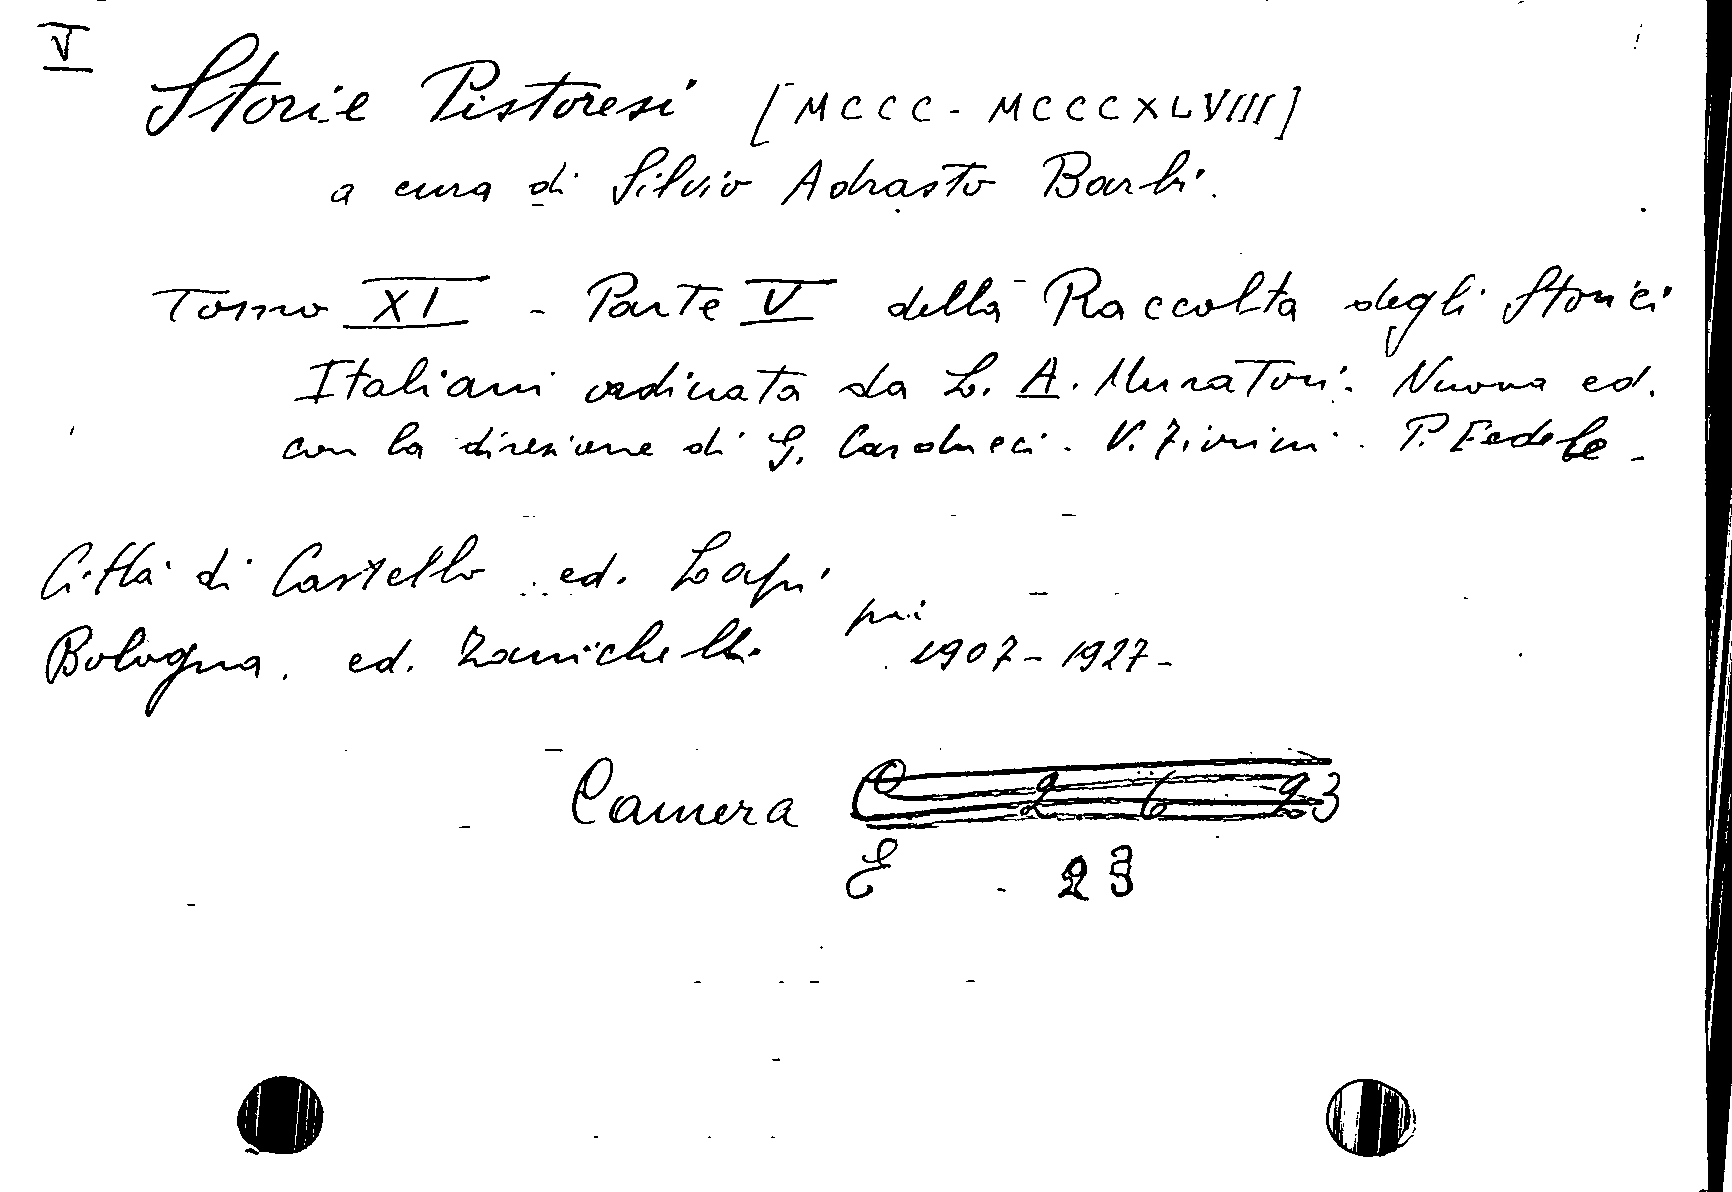 V
Storie Pistoresi [MCCC - MCCCXLVIII]
a cura di Silvio Adrasto Barbi.
Tomo XI - Parte V della Raccolta degli Storici
Italiani ordinata da L. A. Muratori. Nuova ed.
con la direzione di G. Carducci. V. Fiorini. P. Fedele -
Città di Castello ed. Lapi
poi
Bologna. ed. Zanichelli. 1907 - 1927 -
Camera C 2 6 23
E 23